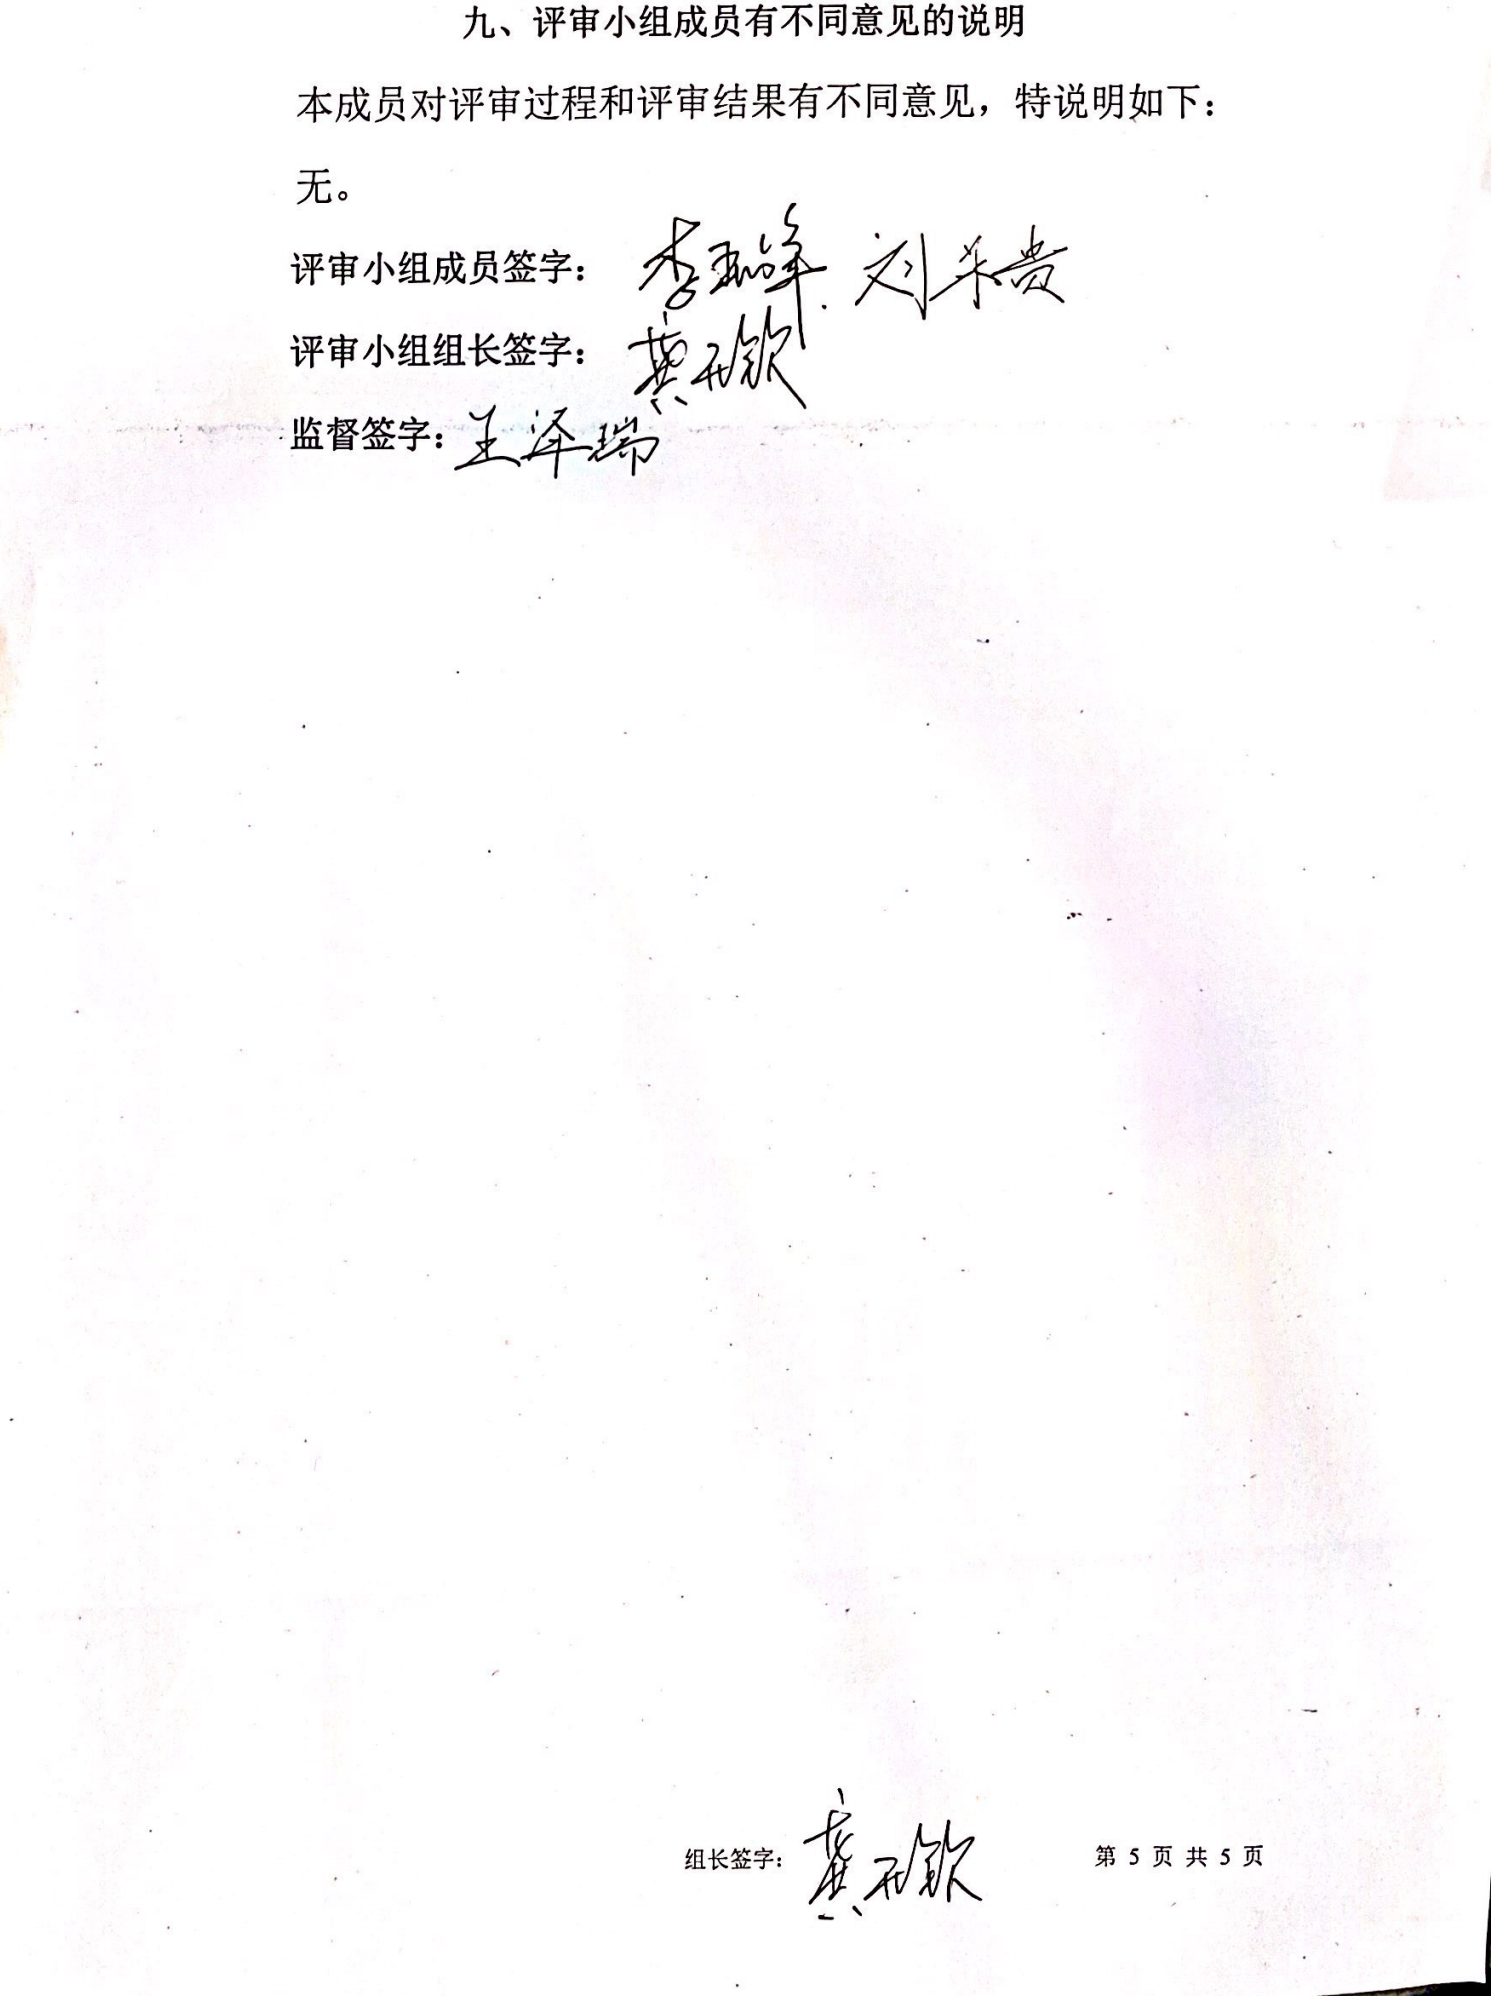 九、评审小组成员有不同意见的说明
本成员对评审过程和评审结果有不同意见，特说明如下：
无。
评审小组成员签字：
评审小组组长签字：
监督签字：王泽瑞
组长签字： 第 5 页 共 5 页